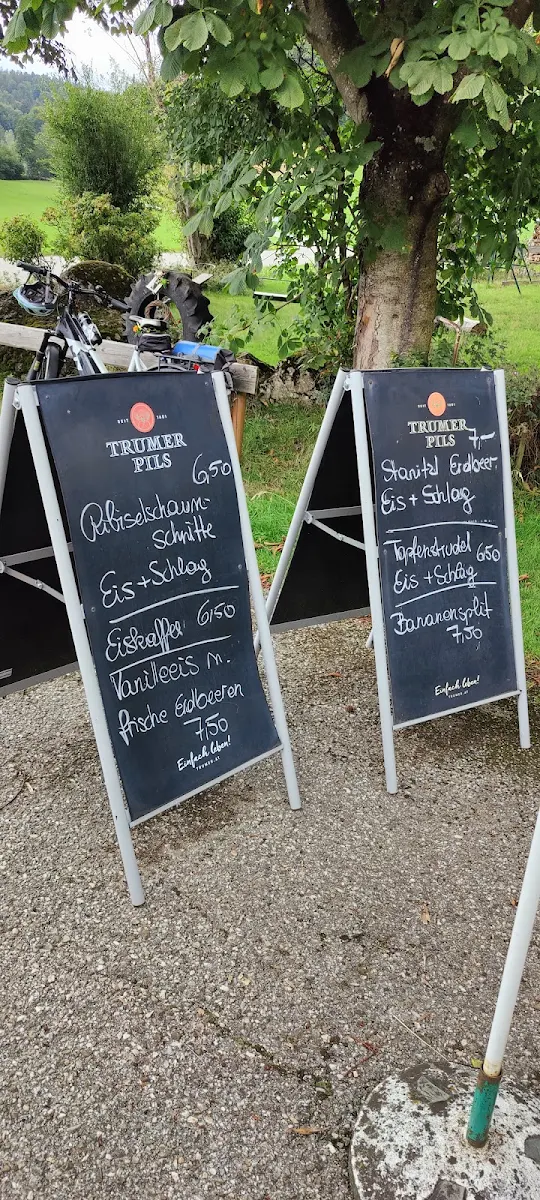 SEIT 1601
TRUMER
PILS
6,50
Ribiselschaum-
schnitte
Eis + Schlag
Eiskaffee 6,50
Vanilleeis m.
frische Erdbeeren
7,50
Einfach leben!
TRUMER.AT
SEIT 1601
TRUMER
PILS 7,—
Stanitzl Erdbeer
Eis + Schlag
Topfenstrudel 6,50
Eis + Schlag
Bananensplit
7,50
Einfach leben!
TRUMER.AT